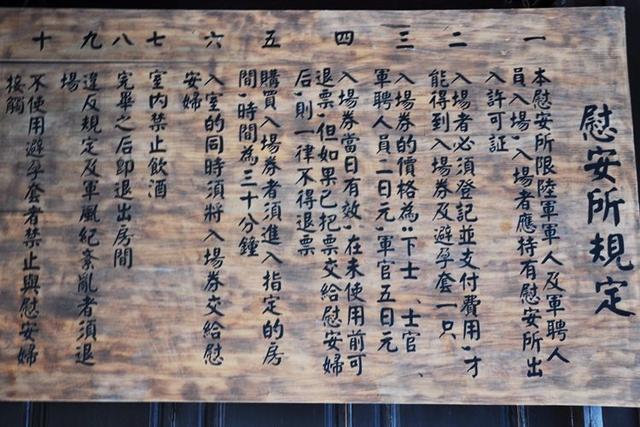 慰安所規定
一
本慰安所限陸軍軍人及軍聘人
員入場，入場者應持有慰安所出
入許可証
二
入場者必須登記並支付費用，才
能得到入場券及避孕套一只
三
入場券的價格為，下士、士官、
軍聘人員二日元，軍官五日元
四
入場券當日有效，在未使用前可
退票，但如果已把票交給慰安婦
后，則一律不得退票
五
購買入場券者須進入指定的房
間，時間為三十分鐘
六
入室的同時須將入場券交給慰
安婦
七
室內禁止飲酒
八
完畢之后卽退出房間
九
違反規定及軍風紀紊亂者須退
場
十
不使用避孕套者禁止與慰安婦
接觸